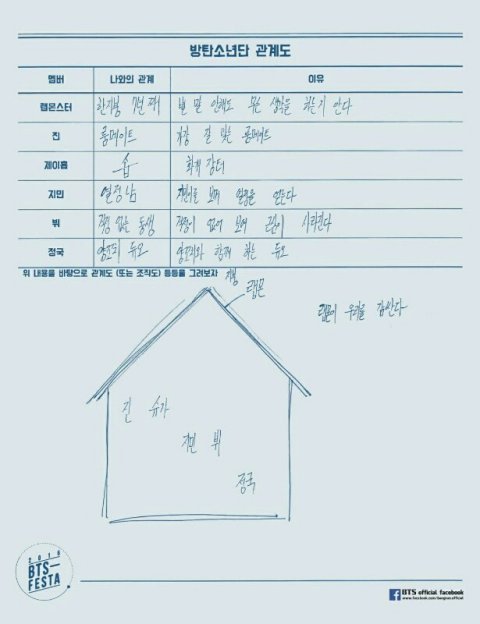 방탄소년단 관계도
멤버 나와의 관계 이유
랩몬스터 한지붕 7년 째 별 말 안해도 무슨 생각을 하는지 안다
진 룸메이트 가장 잘 맞는 룸메이트
제이홉 숍 회계 장터
지민 열정남 지민이를 보며 열정을 얻는다
뷔 걱정 없는 동생 걱정이 없어 보여 근심이 사라진다
정국 양꼬치 듀오 양꼬치와 함께 하는 듀오
위 내용을 바탕으로 관계도 (또는 조직도) 등등을 그려보자
지붕
랩몬
랩몬이 우리를 감싼다
진 슈가
지민 뷔
정국
2016
BTS
FESTA
BTS official facebook
www.facebook.com/bangtan.official